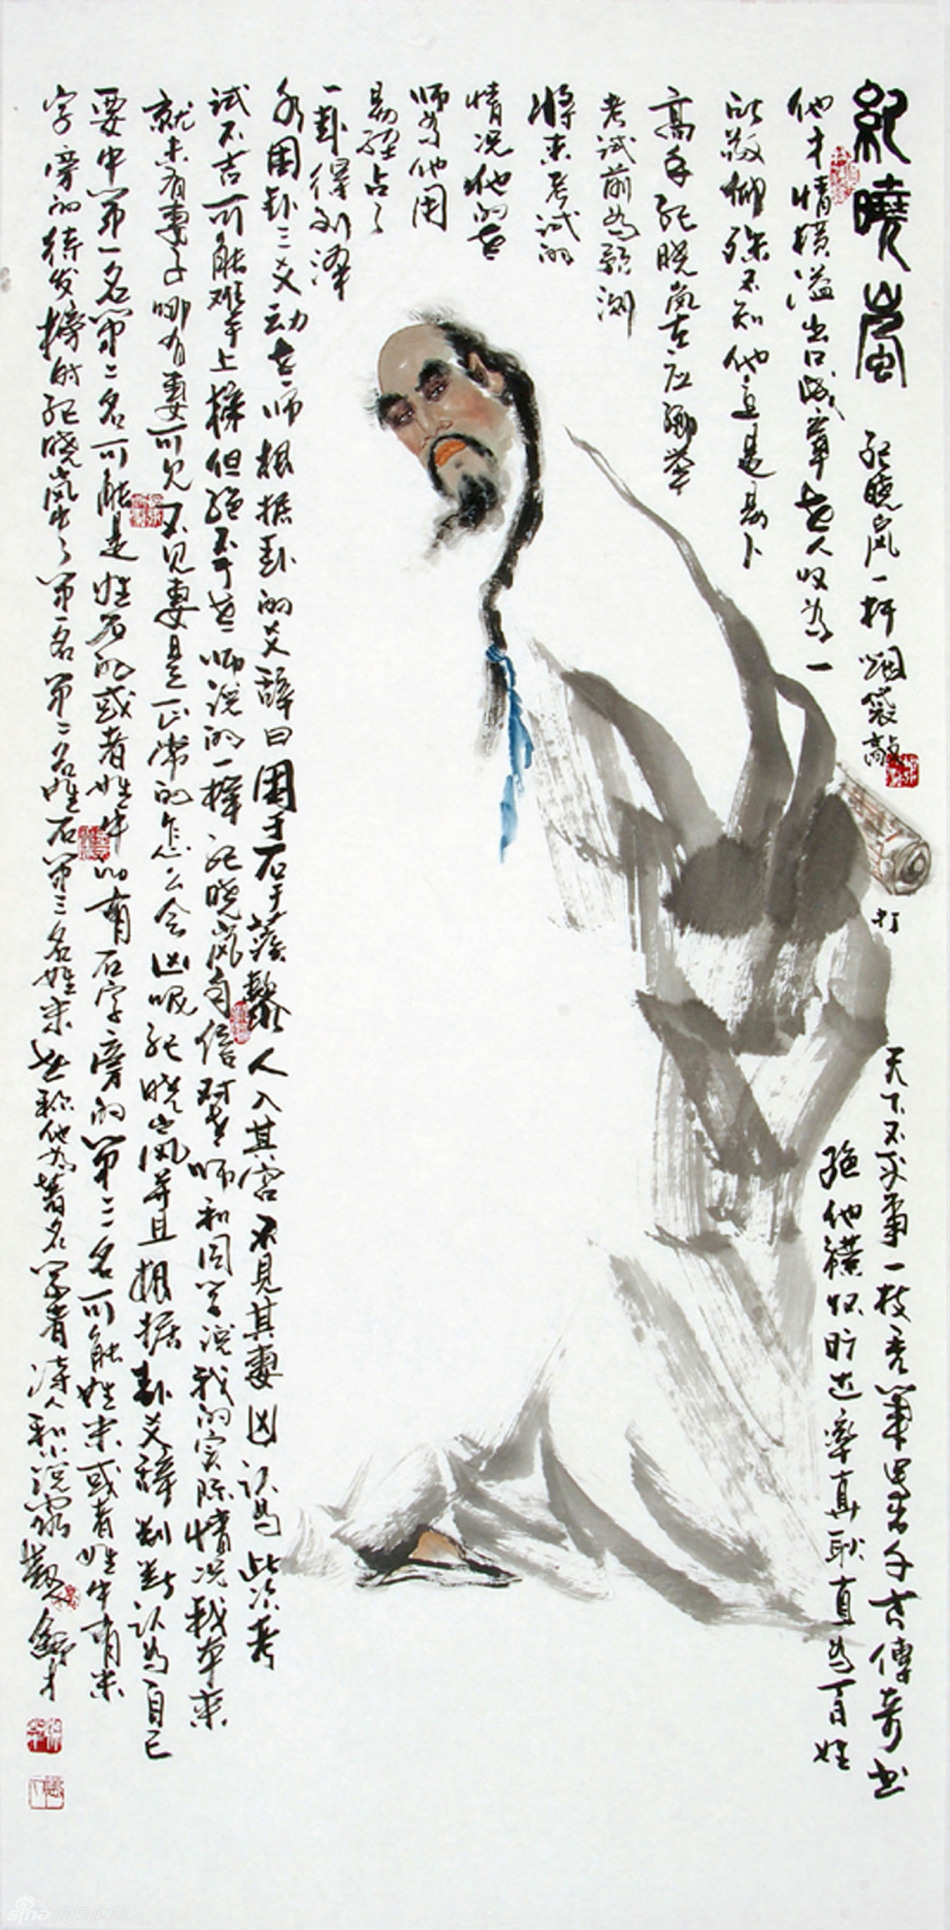 紀曉嵐
纪晓岚一杆烟袋敲
打
天下不平事一枝秀筆写出千古傳奇书
他才情横溢出口成章世人叹为一
绝他襟怀旷达率真耿直为百姓
所敬仰殊不知他竟是易卜
高手纪晓岚在应乡举
考试前为预测
将来考试的
情况他的老
师为他用
易经占了
一卦得到泽
水困卦三爻动老师根据卦的爻辞曰困于石于蒺藜人入其宫不见其妻凶认为此次考
试不吉可能难于上榜但绝不于老师说的一样纪晓岚自信对老师和同学说我的实际情况我本来
就未有妻子哪有妻可见不见妻是正常的怎么会凶呢纪晓岚并且根据卦爻辞判断认为自己
要中第一名第二名可能是姓石的或者姓中有石字旁的第三名可能姓米或者姓中有米
字旁的待发榜时纪晓岚中了第一名第二名姓石第三名姓米世称他为著名学者诗人和小说家
sina 新浪收藏